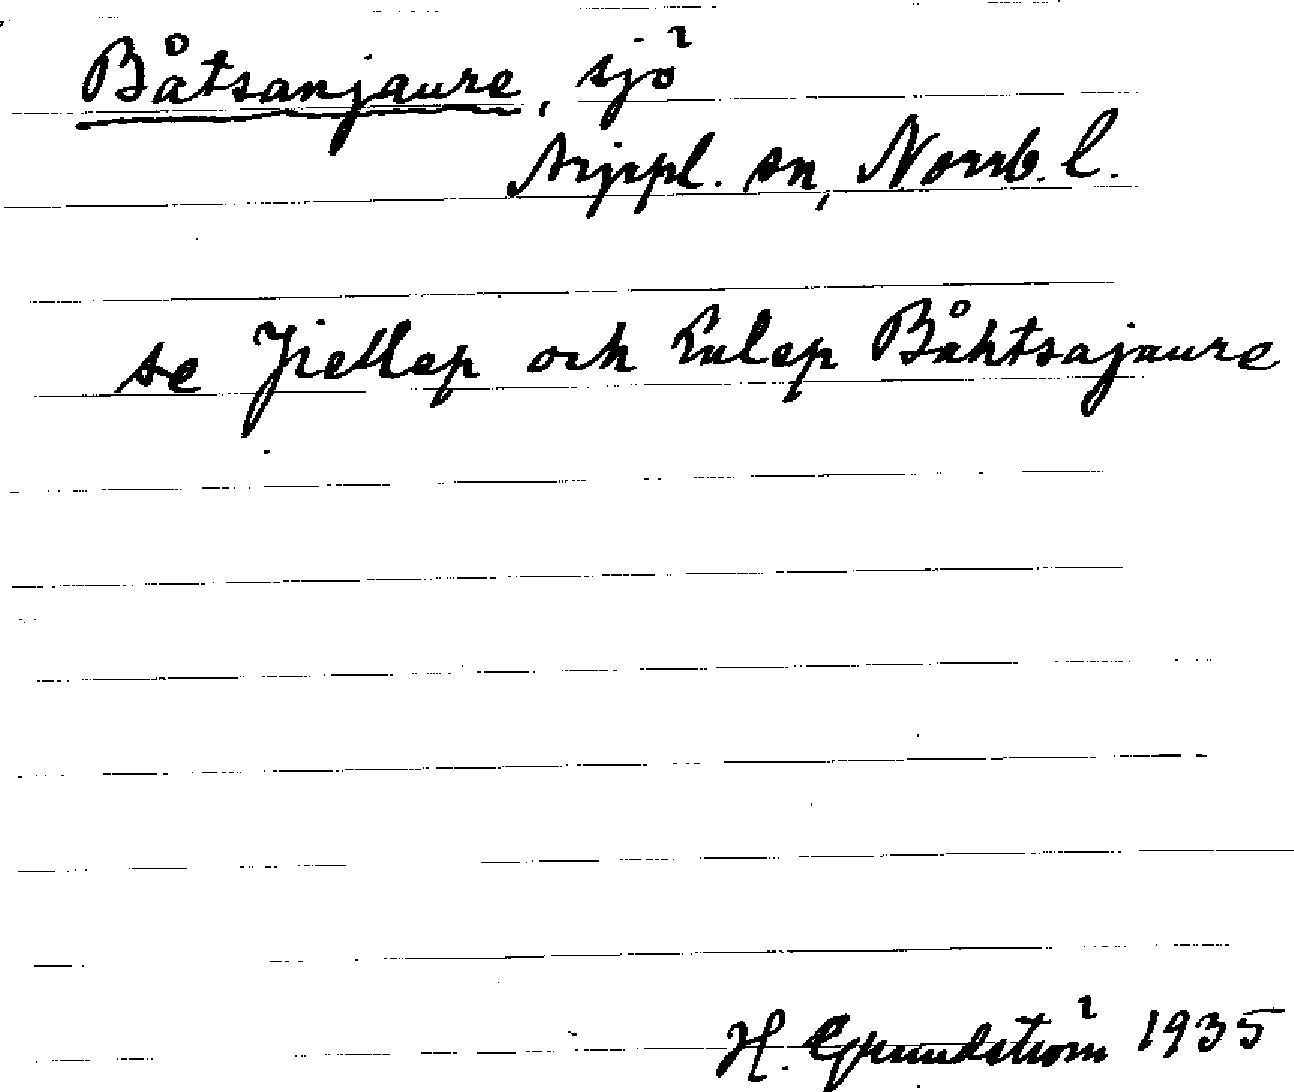 Båtsanjaure, sjö
Arjepl. sn, Norrb. l.
se Jiellep och Lulep Båhtsajaure
H. Grundström 1935